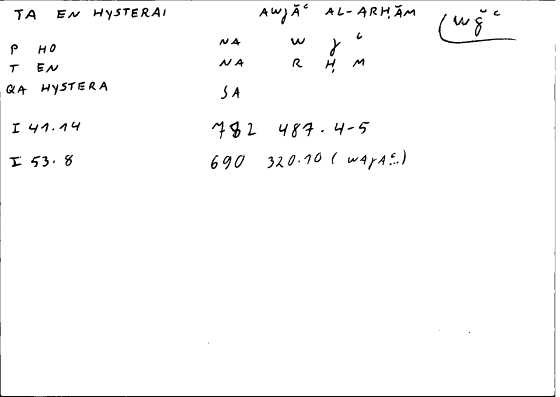 TA EN HYSTERAI AWǧĀᶜ AL-ARḤĀM wǧᶜ
P HO NA W ǧ ᶜ
T EN NA R Ḥ M
QA HYSTERA SA
I 41.14 782 487.4-5
I 53.8 690 320.10 (WAǧAᶜ...)